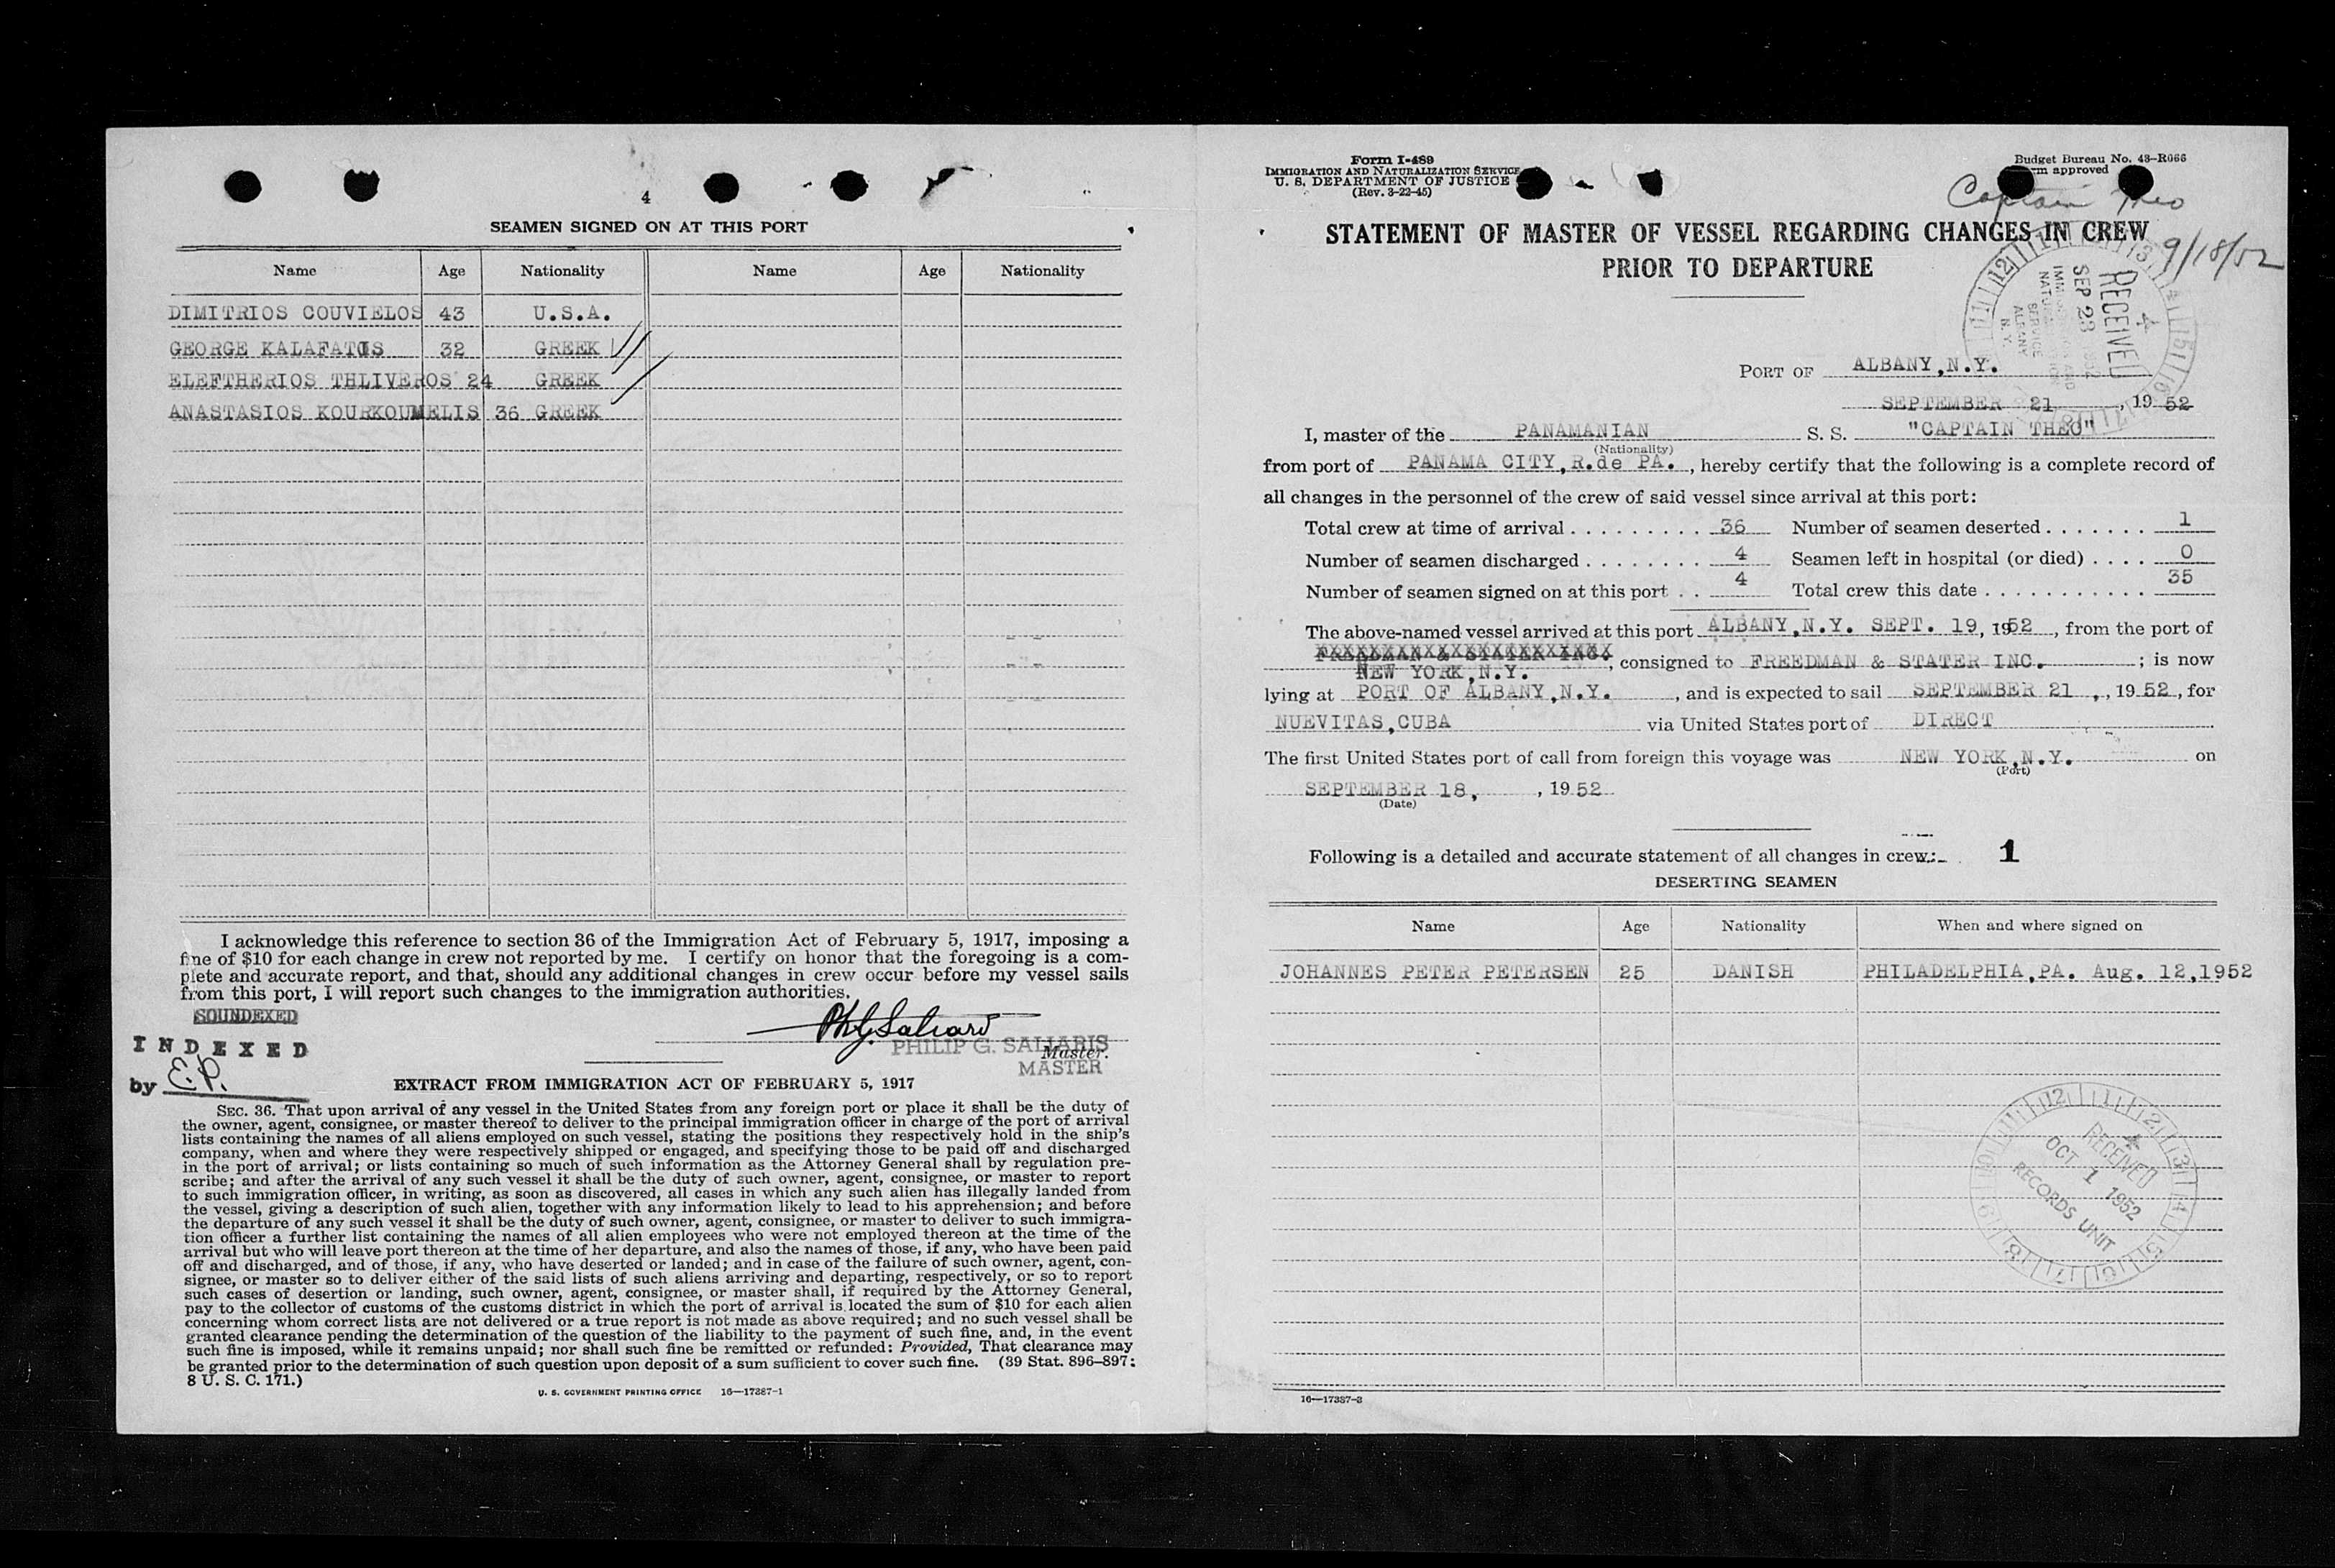 4
SEAMEN SIGNED ON AT THIS PORT
Name Age Nationality Name Age Nationality
DIMITRIOS COUVIELOS 43 U.S.A.
GEORGE KALAFATIS 32 GREEK
ELEFTHERIOS THLIVEROS 24 GREEK
ANASTASIOS KOURKOUMELIS 36 GREEK
I acknowledge this reference to section 36 of the Immigration Act of February 5, 1917, imposing a
fine of $10 for each change in crew not reported by me. I certify on honor that the foregoing is a com-
plete and accurate report, and that, should any additional changes in crew occur before my vessel sails
from this port, I will report such changes to the immigration authorities.
SOUNDEXED
INDEXED
by E.P.
PHILIP G. SALIARIS
Master.
MASTER
EXTRACT FROM IMMIGRATION ACT OF FEBRUARY 5, 1917
SEC. 36. That upon arrival of any vessel in the United States from any foreign port or place it shall be the duty of
the owner, agent, consignee, or master thereof to deliver to the principal immigration officer in charge of the port of arrival
lists containing the names of all aliens employed on such vessel, stating the positions they respectively hold in the ship's
company, when and where they were respectively shipped or engaged, and specifying those to be paid off and discharged
in the port of arrival; or lists containing so much of such information as the Attorney General shall by regulation pre-
scribe; and after the arrival of any such vessel it shall be the duty of such owner, agent, consignee, or master to report
to such immigration officer, in writing, as soon as discovered, all cases in which any such alien has illegally landed from
the vessel, giving a description of such alien, together with any information likely to lead to his apprehension; and before
the departure of any such vessel it shall be the duty of such owner, agent, consignee, or master to deliver to such immigra-
tion officer a further list containing the names of all alien employees who were not employed thereon at the time of the
arrival but who will leave port thereon at the time of her departure, and also the names of those, if any, who have been paid
off and discharged, and of those, if any, who have deserted or landed; and in case of the failure of such owner, agent, con-
signee, or master so to deliver either of the said lists of such aliens arriving and departing, respectively, or so to report
such cases of desertion or landing, such owner, agent, consignee, or master shall, if required by the Attorney General,
pay to the collector of customs of the customs district in which the port of arrival is located the sum of $10 for each alien
concerning whom correct lists are not delivered or a true report is not made as above required; and no such vessel shall be
granted clearance pending the determination of the question of the liability to the payment of such fine, and, in the event
such fine is imposed, while it remains unpaid; nor shall such fine be remitted or refunded: Provided, That clearance may
be granted prior to the determination of such question upon deposit of a sum sufficient to cover such fine. (39 Stat. 896–897;
8 U. S. C. 171.)
U. S. GOVERNMENT PRINTING OFFICE 16—17387-1
Form I-489
IMMIGRATION AND NATURALIZATION SERVICE
U. S. DEPARTMENT OF JUSTICE
(Rev. 3-22-45)
Budget Bureau No. 43–R066
approved
Captain Theo
9/18/52
STATEMENT OF MASTER OF VESSEL REGARDING CHANGES IN CREW
PRIOR TO DEPARTURE
RECEIVED
SEP 23
SERVICE
ALBANY
N.Y.
PORT OF ALBANY,N.Y.
SEPTEMBER 21, 19 52
I, master of the PANAMANIAN S. S. "CAPTAIN THEO"
(Nationality)
from port of PANAMA CITY,R.de PA., hereby certify that the following is a complete record of
all changes in the personnel of the crew of said vessel since arrival at this port:
Total crew at time of arrival . . . . . . . . . 36 Number of seamen deserted . . . . . . . 1
Number of seamen discharged . . . . . . . . 4 Seamen left in hospital (or died) . . . . 0
Number of seamen signed on at this port . . 4 Total crew this date . . . . . . . . . . . 35
The above-named vessel arrived at this port ALBANY,N.Y. SEPT. 19, 1952, from the port of
FREEDMAN & STATER INC.
NEW YORK,N.Y., consigned to FREEDMAN & STATER INC. ; is now
lying at PORT OF ALBANY,N.Y. , and is expected to sail SEPTEMBER 21 , , 19 52, for
NUEVITAS,CUBA via United States port of DIRECT
The first United States port of call from foreign this voyage was NEW YORK,N.Y. on
(Port)
SEPTEMBER 18, , 19 52
(Date)
Following is a detailed and accurate statement of all changes in crew: 1
DESERTING SEAMEN
Name Age Nationality When and where signed on
JOHANNES PETER PETERSEN 25 DANISH PHILADELPHIA,PA. Aug. 12,1952
RECEIVED
OCT 1 1952
RECORDS UNIT
16—17387-2